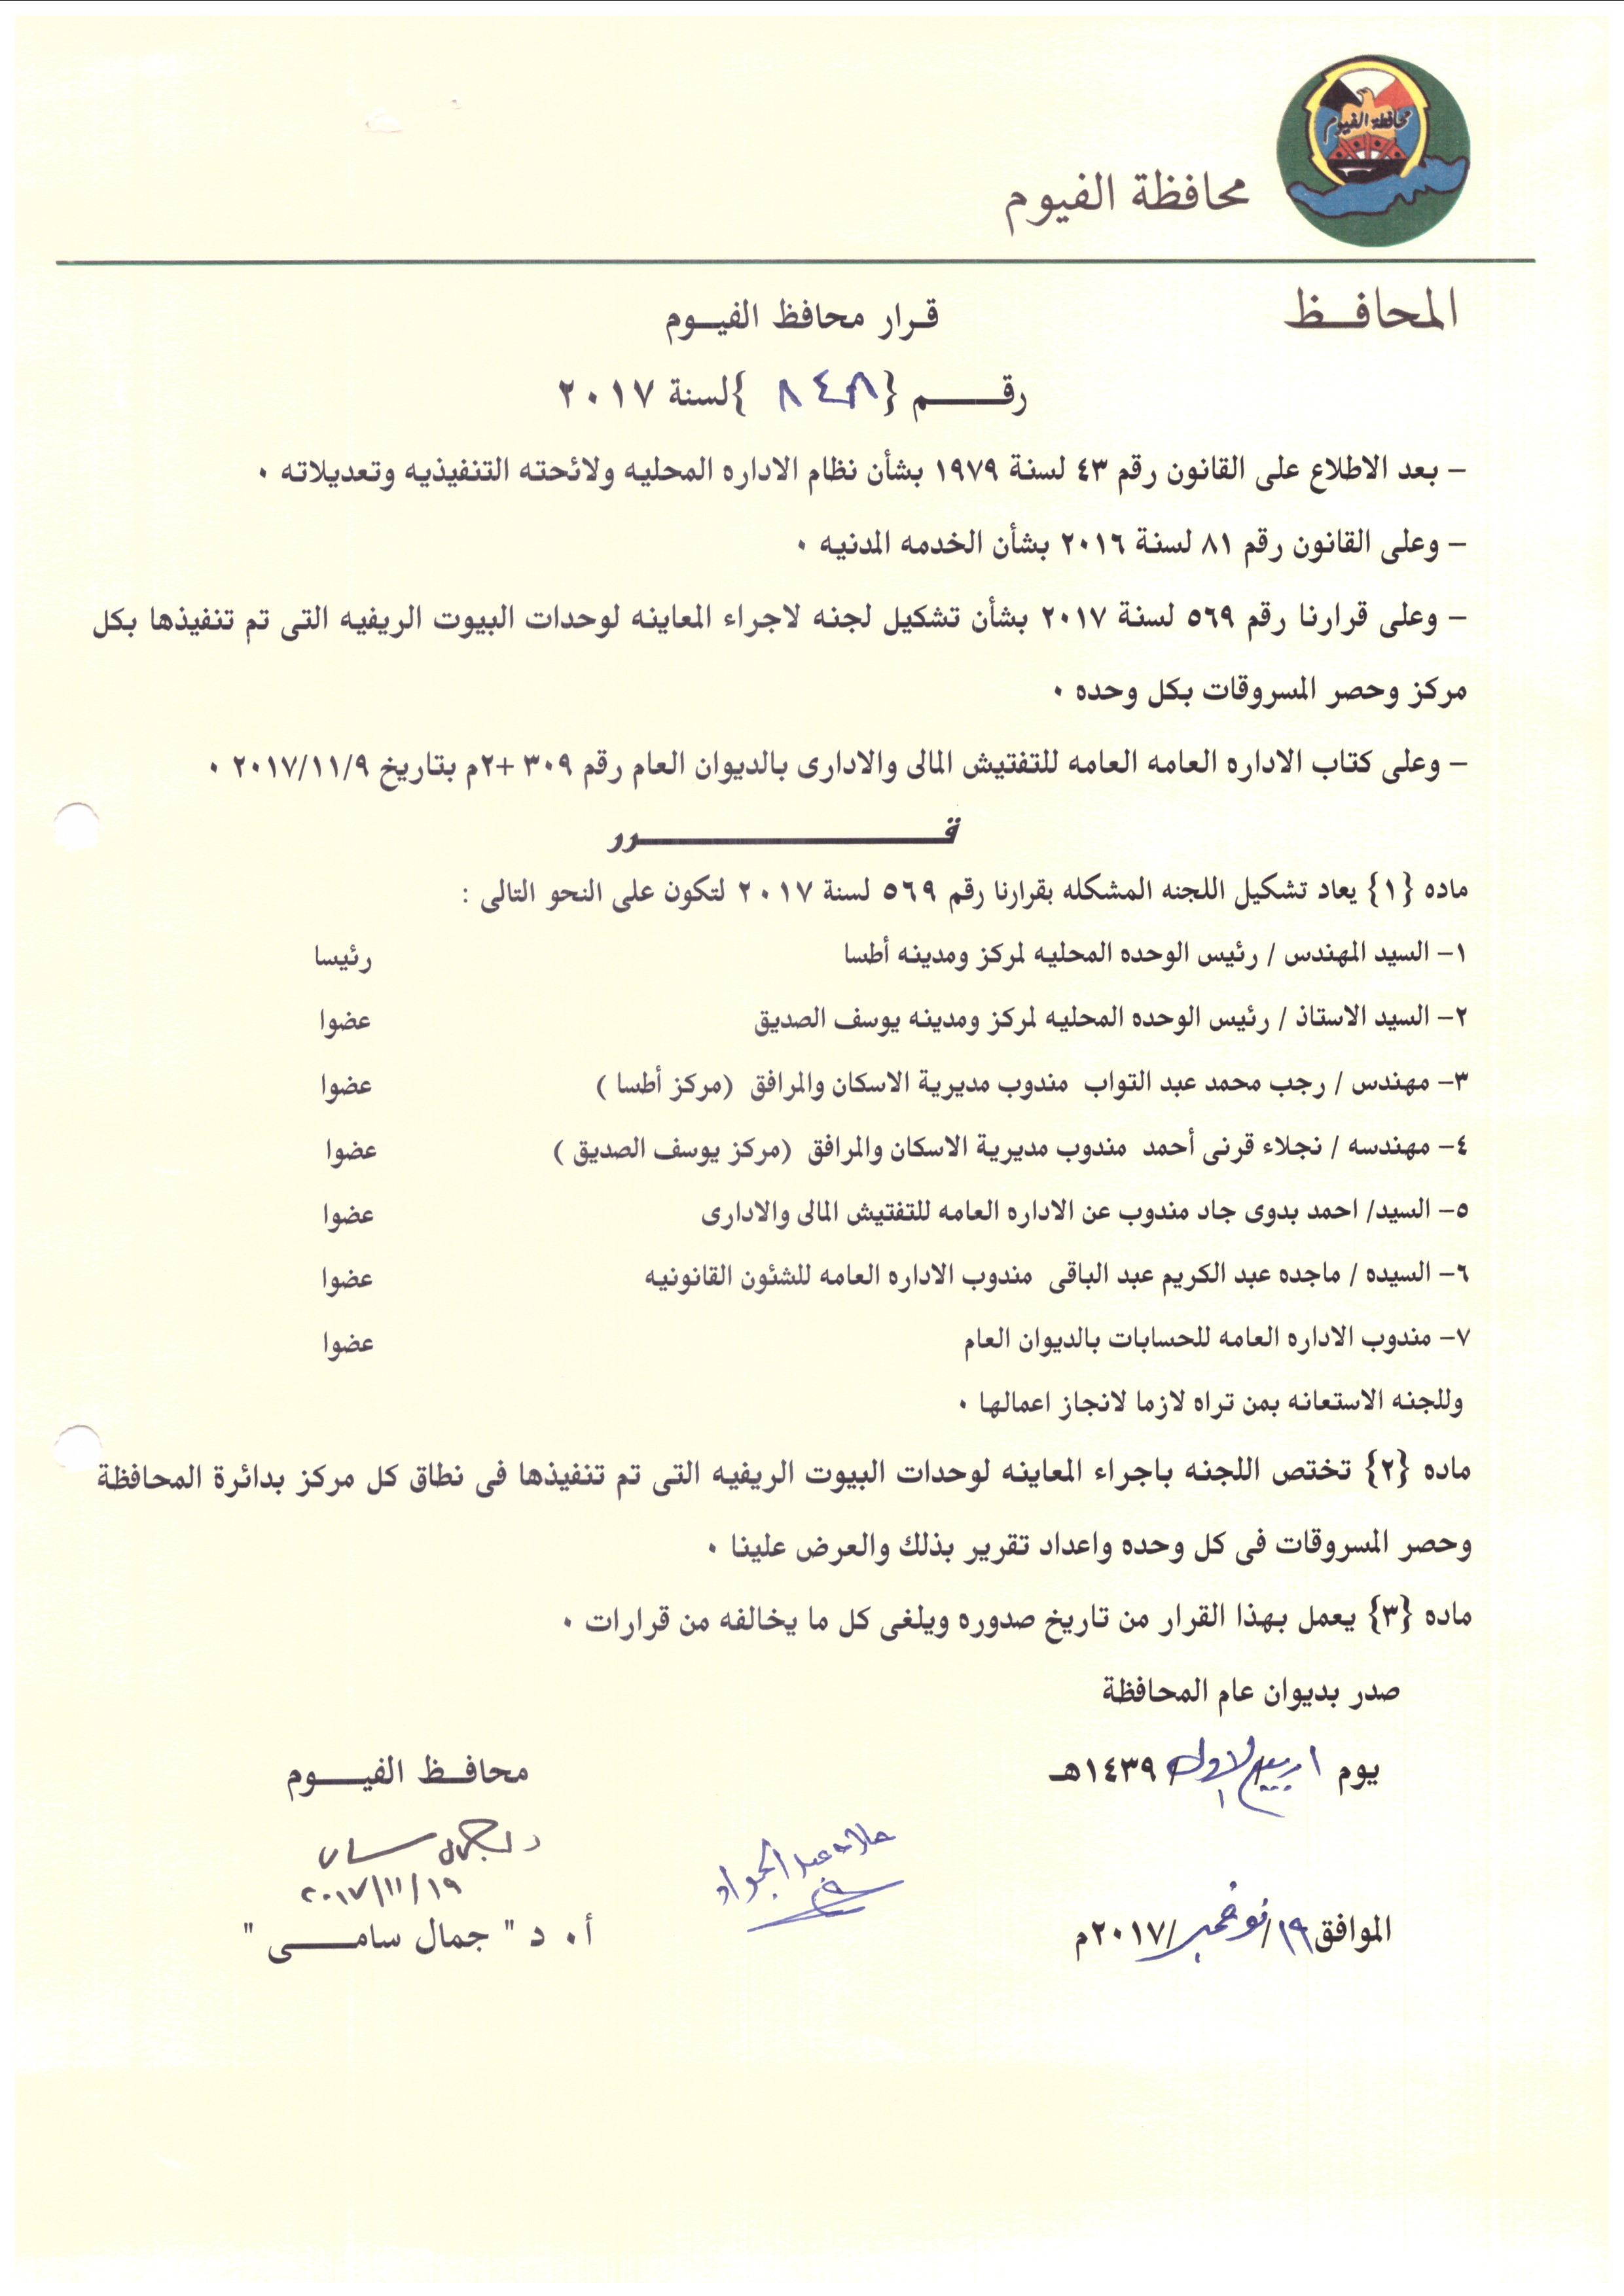 محافظة الفيوم
محافظة الفيوم
المحافـظ
قـرار محافظ الفيـوم
رقـــــم {٨٤٨ }لسنة ٢٠١٧
– بعد الاطلاع على القانون رقم ٤٣ لسنة ١٩٧٩ بشأن نظام الاداره المحليه ولائحته التنفيذيه وتعديلاته ٠
– وعلى القانون رقم ٨١ لسنة ٢٠١٦ بشأن الخدمه المدنيه ٠
– وعلى قرارنا رقم ٥٦٩ لسنة ٢٠١٧ بشأن تشكيل لجنه لاجراء المعاينه لوحدات البيوت الريفيه التى تم تنفيذها بكل
مركز وحصر المسروقات بكل وحده ٠
– وعلى كتاب الاداره العامه العامه للتفتيش المالى والادارى بالديوان العام رقم ٣٠٩ +٢م بتاريخ ٢٠١٧/١١/٩ ٠
قــــــــــــــرر
ماده {١} يعاد تشكيل اللجنه المشكله بقرارنا رقم ٥٦٩ لسنة ٢٠١٧ لتكون على النحو التالى :
١– السيد المهندس / رئيس الوحده المحليه لمركز ومدينه أطسا رئيسا
٢– السيد الاستاذ / رئيس الوحده المحليه لمركز ومدينه يوسف الصديق عضوا
٣– مهندس / رجب محمد عبد التواب مندوب مديرية الاسكان والمرافق (مركز أطسا ) عضوا
٤– مهندسه / نجلاء قرنى أحمد مندوب مديرية الاسكان والمرافق (مركز يوسف الصديق ) عضوا
٥– السيد/ احمد بدوى جاد مندوب عن الاداره العامه للتفتيش المالى والادارى عضوا
٦– السيده / ماجده عبد الكريم عبد الباقى مندوب الاداره العامه للشئون القانونيه عضوا
٧– مندوب الاداره العامه للحسابات بالديوان العام عضوا
وللجنه الاستعانه بمن تراه لازما لانجاز اعمالها ٠
ماده {٢} تختص اللجنه باجراء المعاينه لوحدات البيوت الريفيه التى تم تنفيذها فى نطاق كل مركز بدائرة المحافظة
وحصر المسروقات فى كل وحده واعداد تقرير بذلك والعرض علينا ٠
ماده {٣} يعمل بهذا القرار من تاريخ صدوره ويلغى كل ما يخالفه من قرارات ٠
صدر بديوان عام المحافظة
يوم ١ ربيع الاول ١٤٣٩هـ
محافـظ الفيــــوم
عبد الجواد
٢٠١٧/١١/١٩
الموافق ١٩/نوفمبر/٢٠١٧م
أ٠ د " جمال سامـــــى "